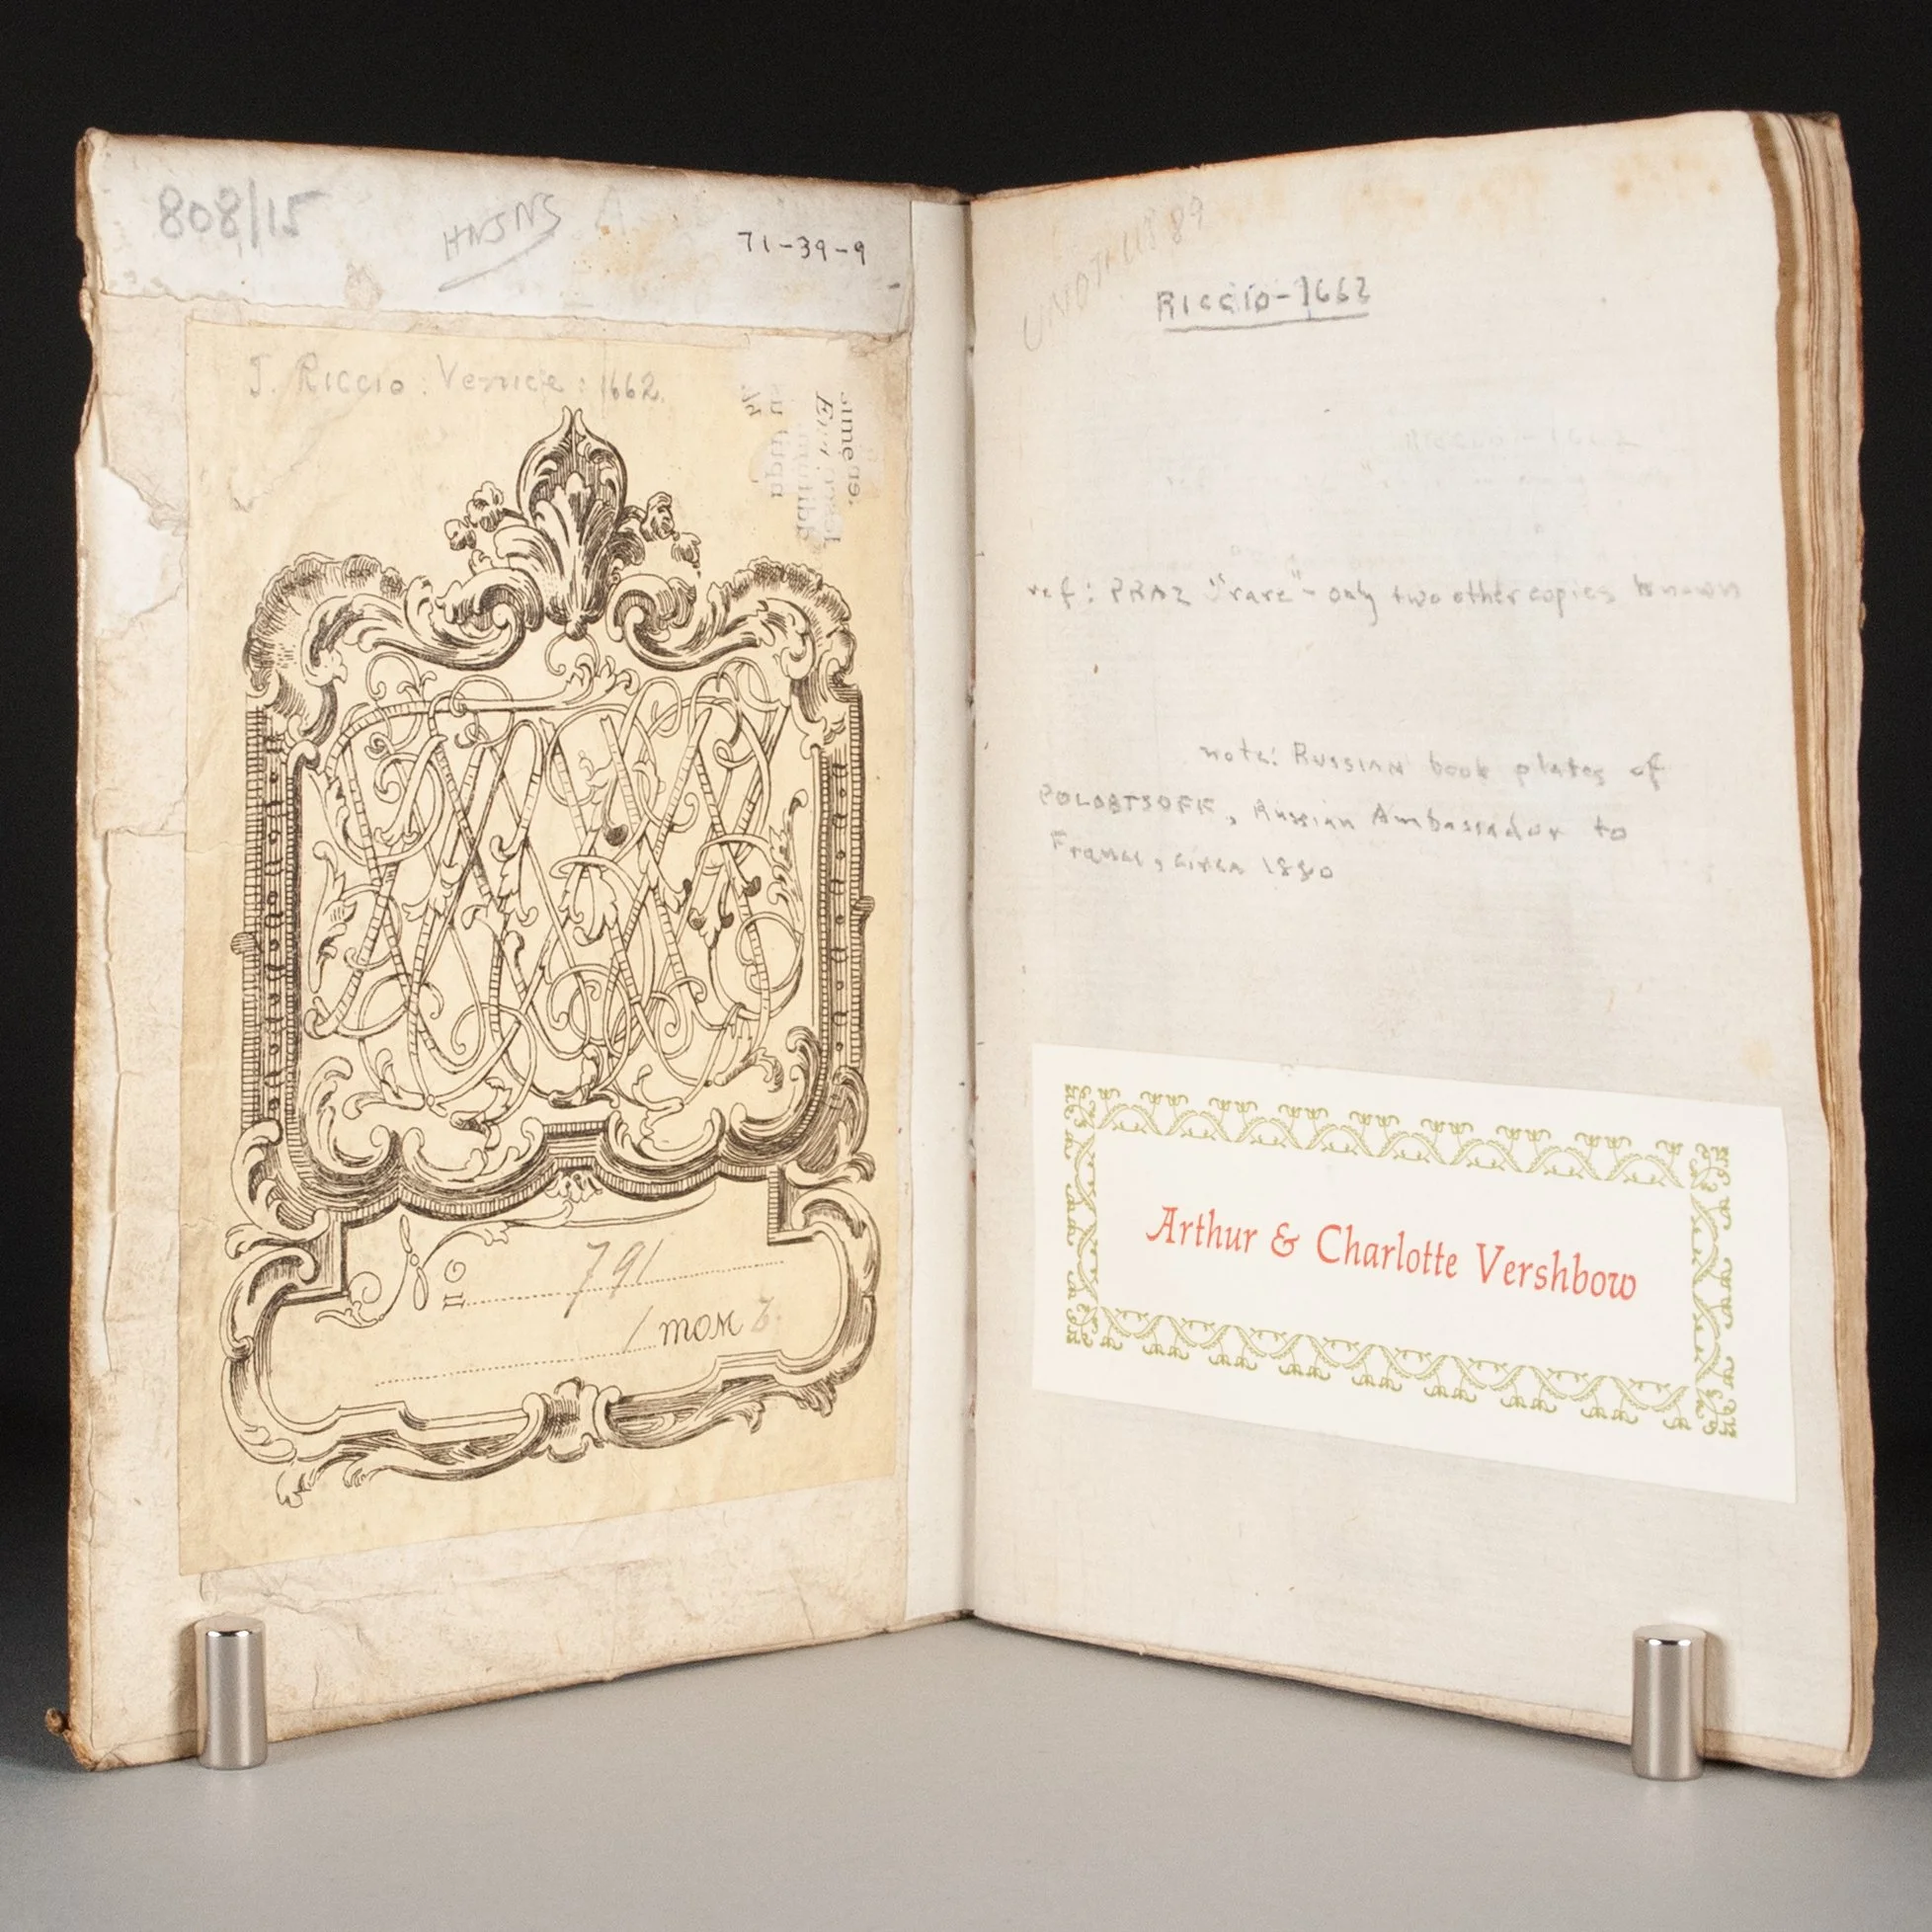 808/15
HNSNS A
71-39-9
J. Riccio: Venice: 1662.
№ 791
1 томъ
Riccio-1662
ref: PRAZ "rare" - only two other copies known
note: Russian book plates of
POLOBTSOFF, Russian Ambassador to
France, circa 1880
Arthur & Charlotte Vershbow